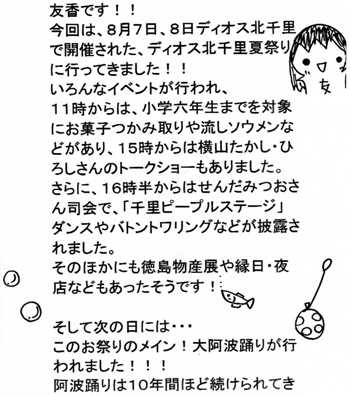 友香です！！
今回は、８月７日、８日ディオス北千里
で開催された、ディオス北千里夏祭り
に行ってきました！！
いろんなイベントが行われ、
１１時からは、小学六年生までを対象
にお菓子つかみ取りや流しソウメンな
どがあり、１５時からは横山たかし・ひ
ろしさんのトークショーもありました。
さらに、１６時半からはせんだみつおさ
ん司会で、「千里ピープルステージ」
ダンスやバトントワリングなどが披露さ
れました。
そのほかにも徳島物産展や縁日・夜
店などもあったそうです！
そして次の日には・・・
このお祭りのメイン！大阿波踊りが行
われました！！！
阿波踊りは１０年間ほど続けられてき
友